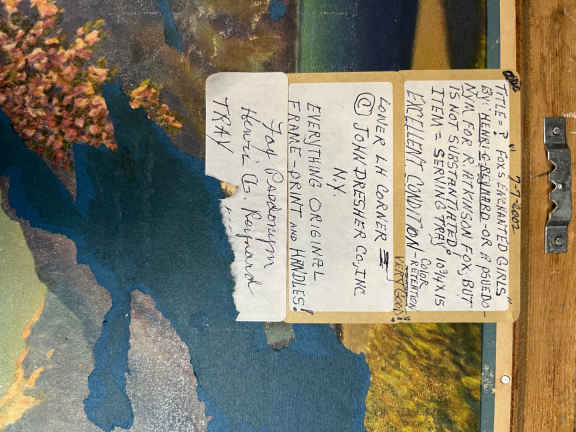 7-7-2002
TITLE = ? "FOX'S ENCHANTED GIRLS"
BY: HENRI G. REYNARD - OR A PSUEDO-
NYM FOR R. ATKINSON FOX, BUT
IS NOT SUBSTANTIATED?
ITEM = SERVING TRAY 10¾ X 15
EXCELLENT CONDITION - COLOR RETENTION
VERY GOOD!
LOWER LH CORNER =
© JOHN DRESHER CO, INC
N.Y.
EVERYTHING ORIGINAL
FRAME, PRINT AND HANDLES!
Fox' Psedonym
Henri G. Reynard
TRAY